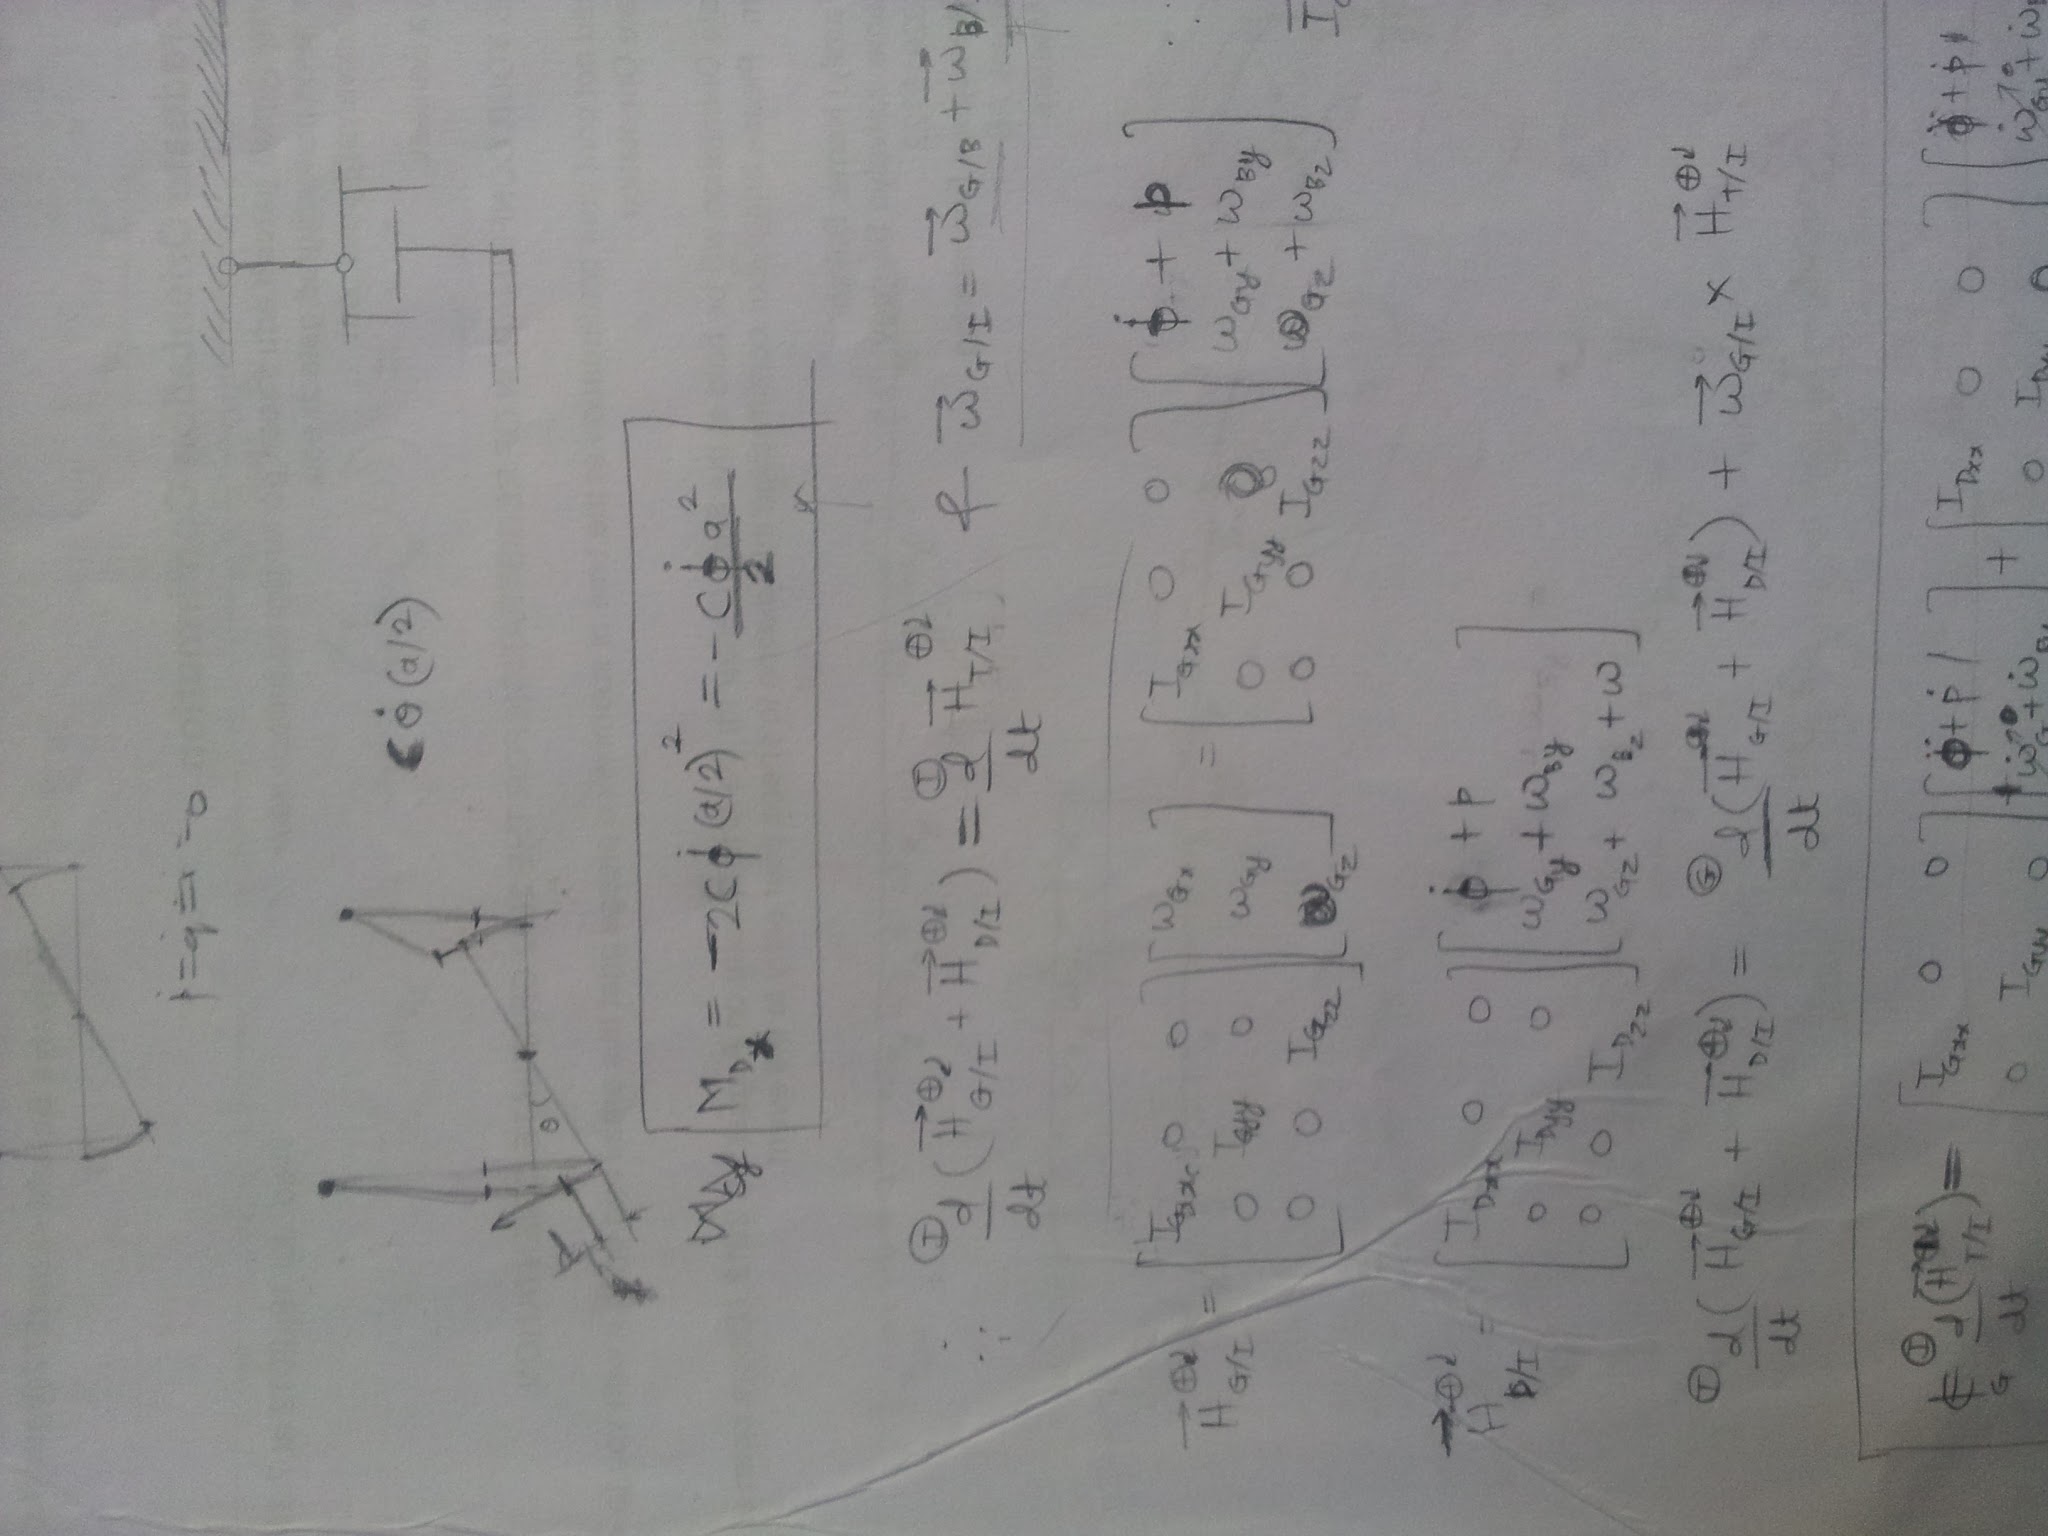 ṗ = q̇ = ṙ = 0
c θ̇ (a/2)
θ
M_Dx = -2Cϕ̇ (a/2)² = -Cϕ̇a²/2
∴ Ⓘd/dt (H⃗_G/I + H⃗_D/I) = Ⓘd/dt H⃗_T/I & ω⃗_G/I = ω⃗_G/B + ω⃗_B/
H⃗_G/I = [I_Gxx 0 0; 0 I_Gyy 0; 0 0 I_Gzz] [ω_Gx; ω_Gy; ω_Gz] = [I_Gxx 0 0; 0 I_Gyy 0; 0 0 I_Gzz] [ϕ̇ + p; ω_Gy + ω_By; ω_Gz + ω_Bz]
H⃗_D/I = [I_Dxx 0 0; 0 I_Dyy 0; 0 0 I_Dzz] [ϕ̇ + p; ω_Gy + ω_By; ω_Gz + ω_Bz + ω]
Ⓘd/dt (H⃗_G/I + H⃗_D/I) = Ⓖd/dt (H⃗_G/I + H⃗_D/I) + ω⃗_G/I × H⃗_T/I
Ⓘd/dt (H⃗_T/I) = [I_Gxx 0 0; 0 I_Gyy 0] [ϕ̈ + ṗ; ω̇_Gy + ω̇_B] + [I_Dxx 0 0; 0 I_Dyy 0] [ϕ̈ + ṗ; ω̇_Gy + ω̇_B]